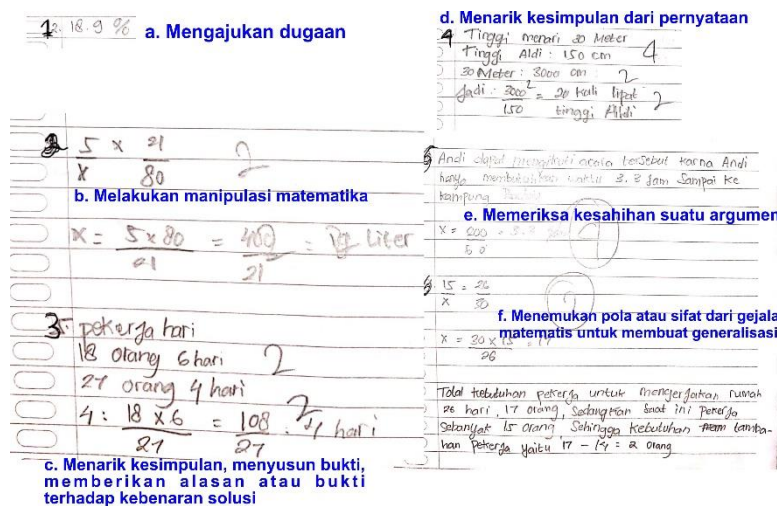 1 2. 18.9 %
a. Mengajukan dugaan
5 x 21
x 80
2
b. Melakukan manipulasi matematika
x = 5 x 80 = 400 = liter
21 21
3. pekerja hari
18 orang 6 hari 2
27 orang 4 hari
4 : 18 x 6 = 108 : 4 hari 2
27 27
c. Menarik kesimpulan, menyusun bukti,
memberikan alasan atau bukti
terhadap kebenaran solusi
d. Menarik kesimpulan dari pernyataan
4 Tinggi menari 30 Meter
Tinggi Aldi : 150 cm 4
30 Meter : 3000 cm 2
Jadi : 3000 = 20 kali lipat 2
150 tinggi Aldi
5 Andi dapat mengikuti acara tersebut karna Andi
hanya membutuhkan waktu 3.3 Jam Sampai ke
kampung
e. Memeriksa kesahihan suatu argumen
x = 200 = 3.3 4
60
15 = 26
x 30
f. Menemukan pola atau sifat dari gejala
matematis untuk membuat generalisasi
x = 30 x 15 = 17
26
Total kebutuhan pekerja untuk mengerjakan rumah
26 hari, 17 orang, Sedangkan Saat ini Pekerja
Sebanyak 15 orang Sehingga kebutuhan tamba-
han Pekerja yaitu 17 - 15 = 2 orang